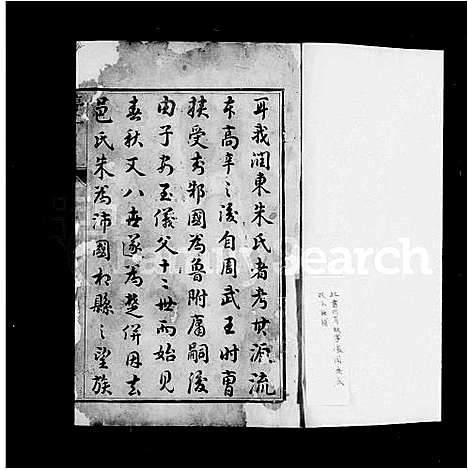 耳我潤東朱氏者考其源流
本高辛之後自周武王時曹
挾受封邾國為魯附庸嗣後
由子安至儀父十二世而始見
春秋又八世遂為楚併因去
邑氏朱為沛國相縣之望族
Search